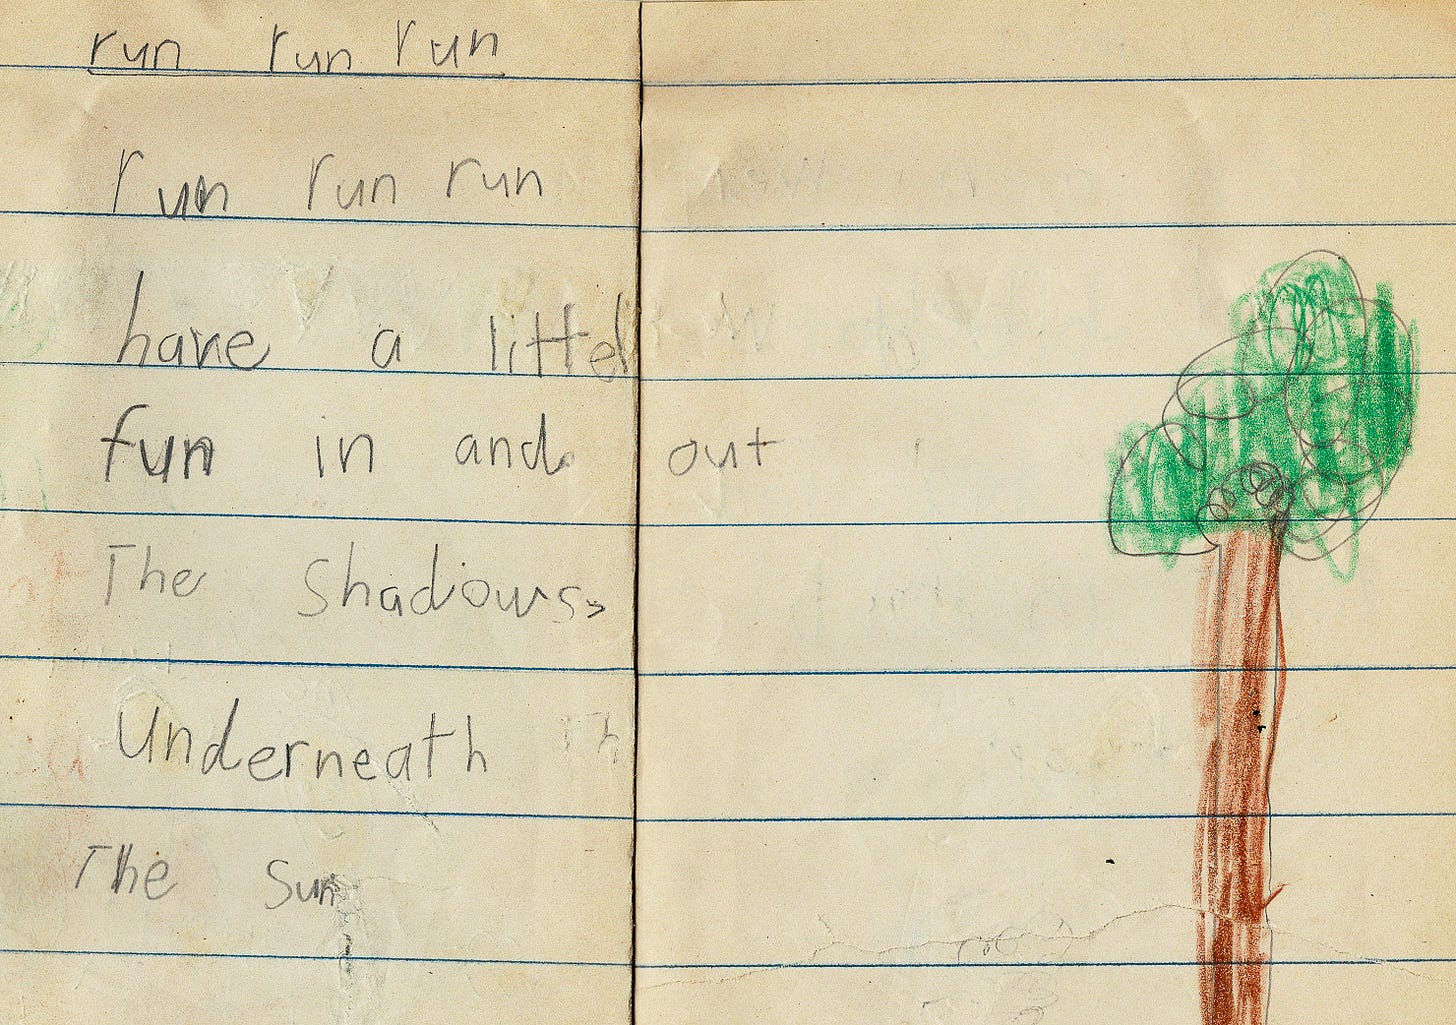 run run run
run run run
have a littel
fun in and out
The Shadows
Underneath
The Sun